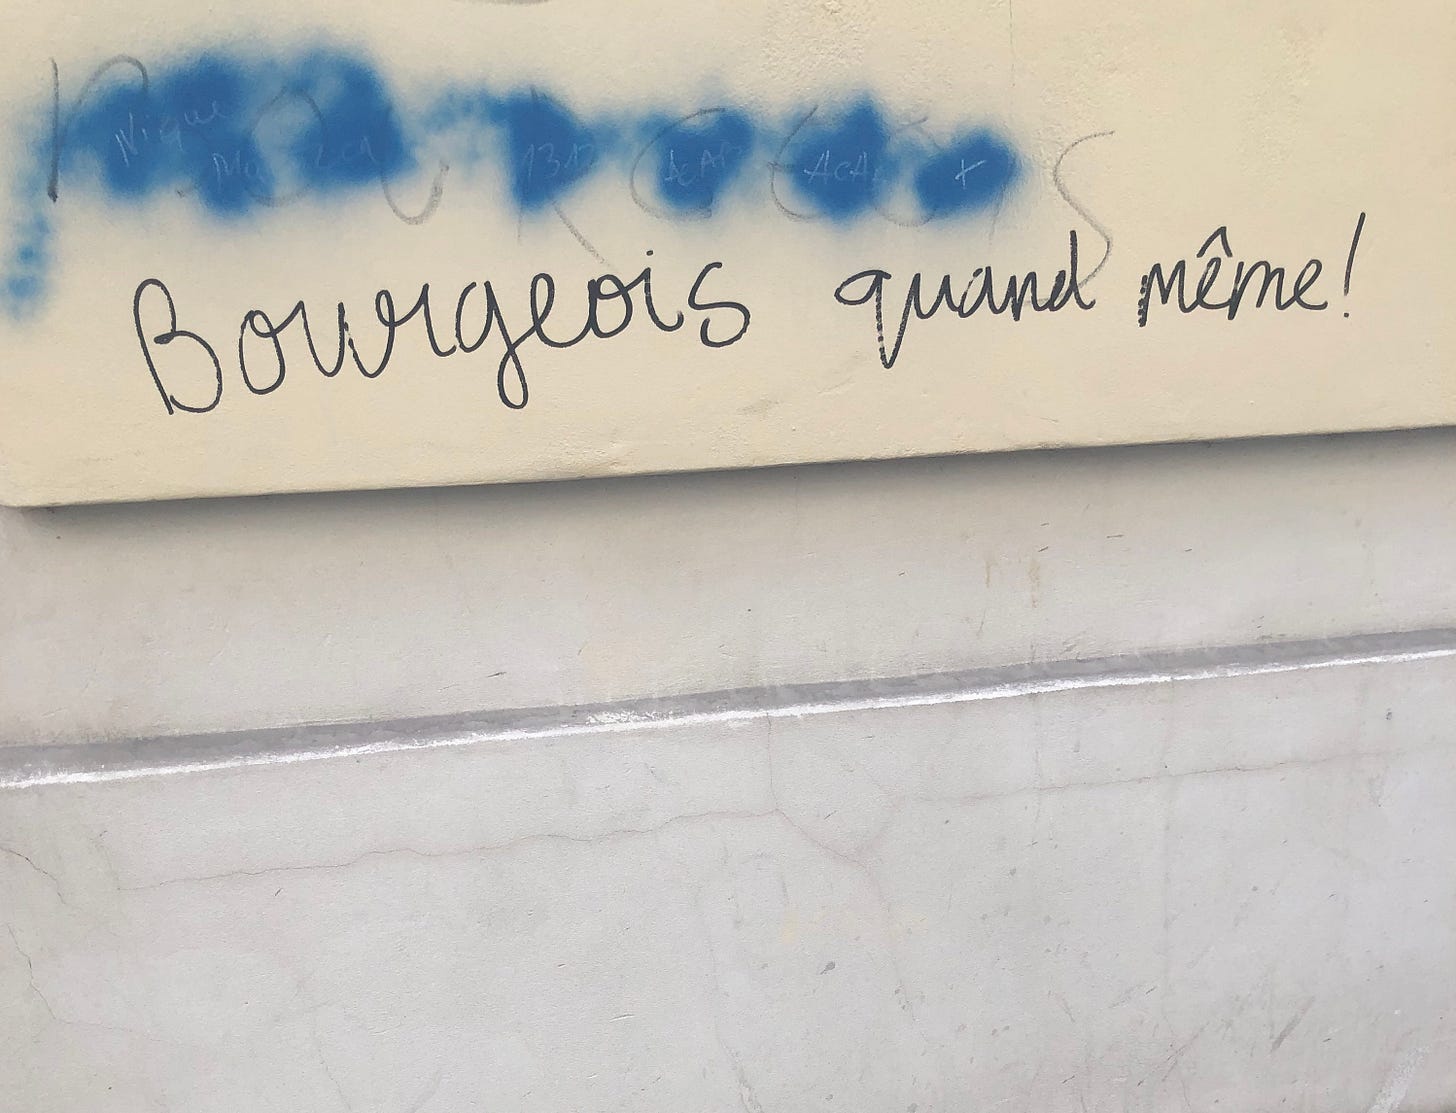 Nique
1312 ACAB ACAB +
Bourgeois quand même!